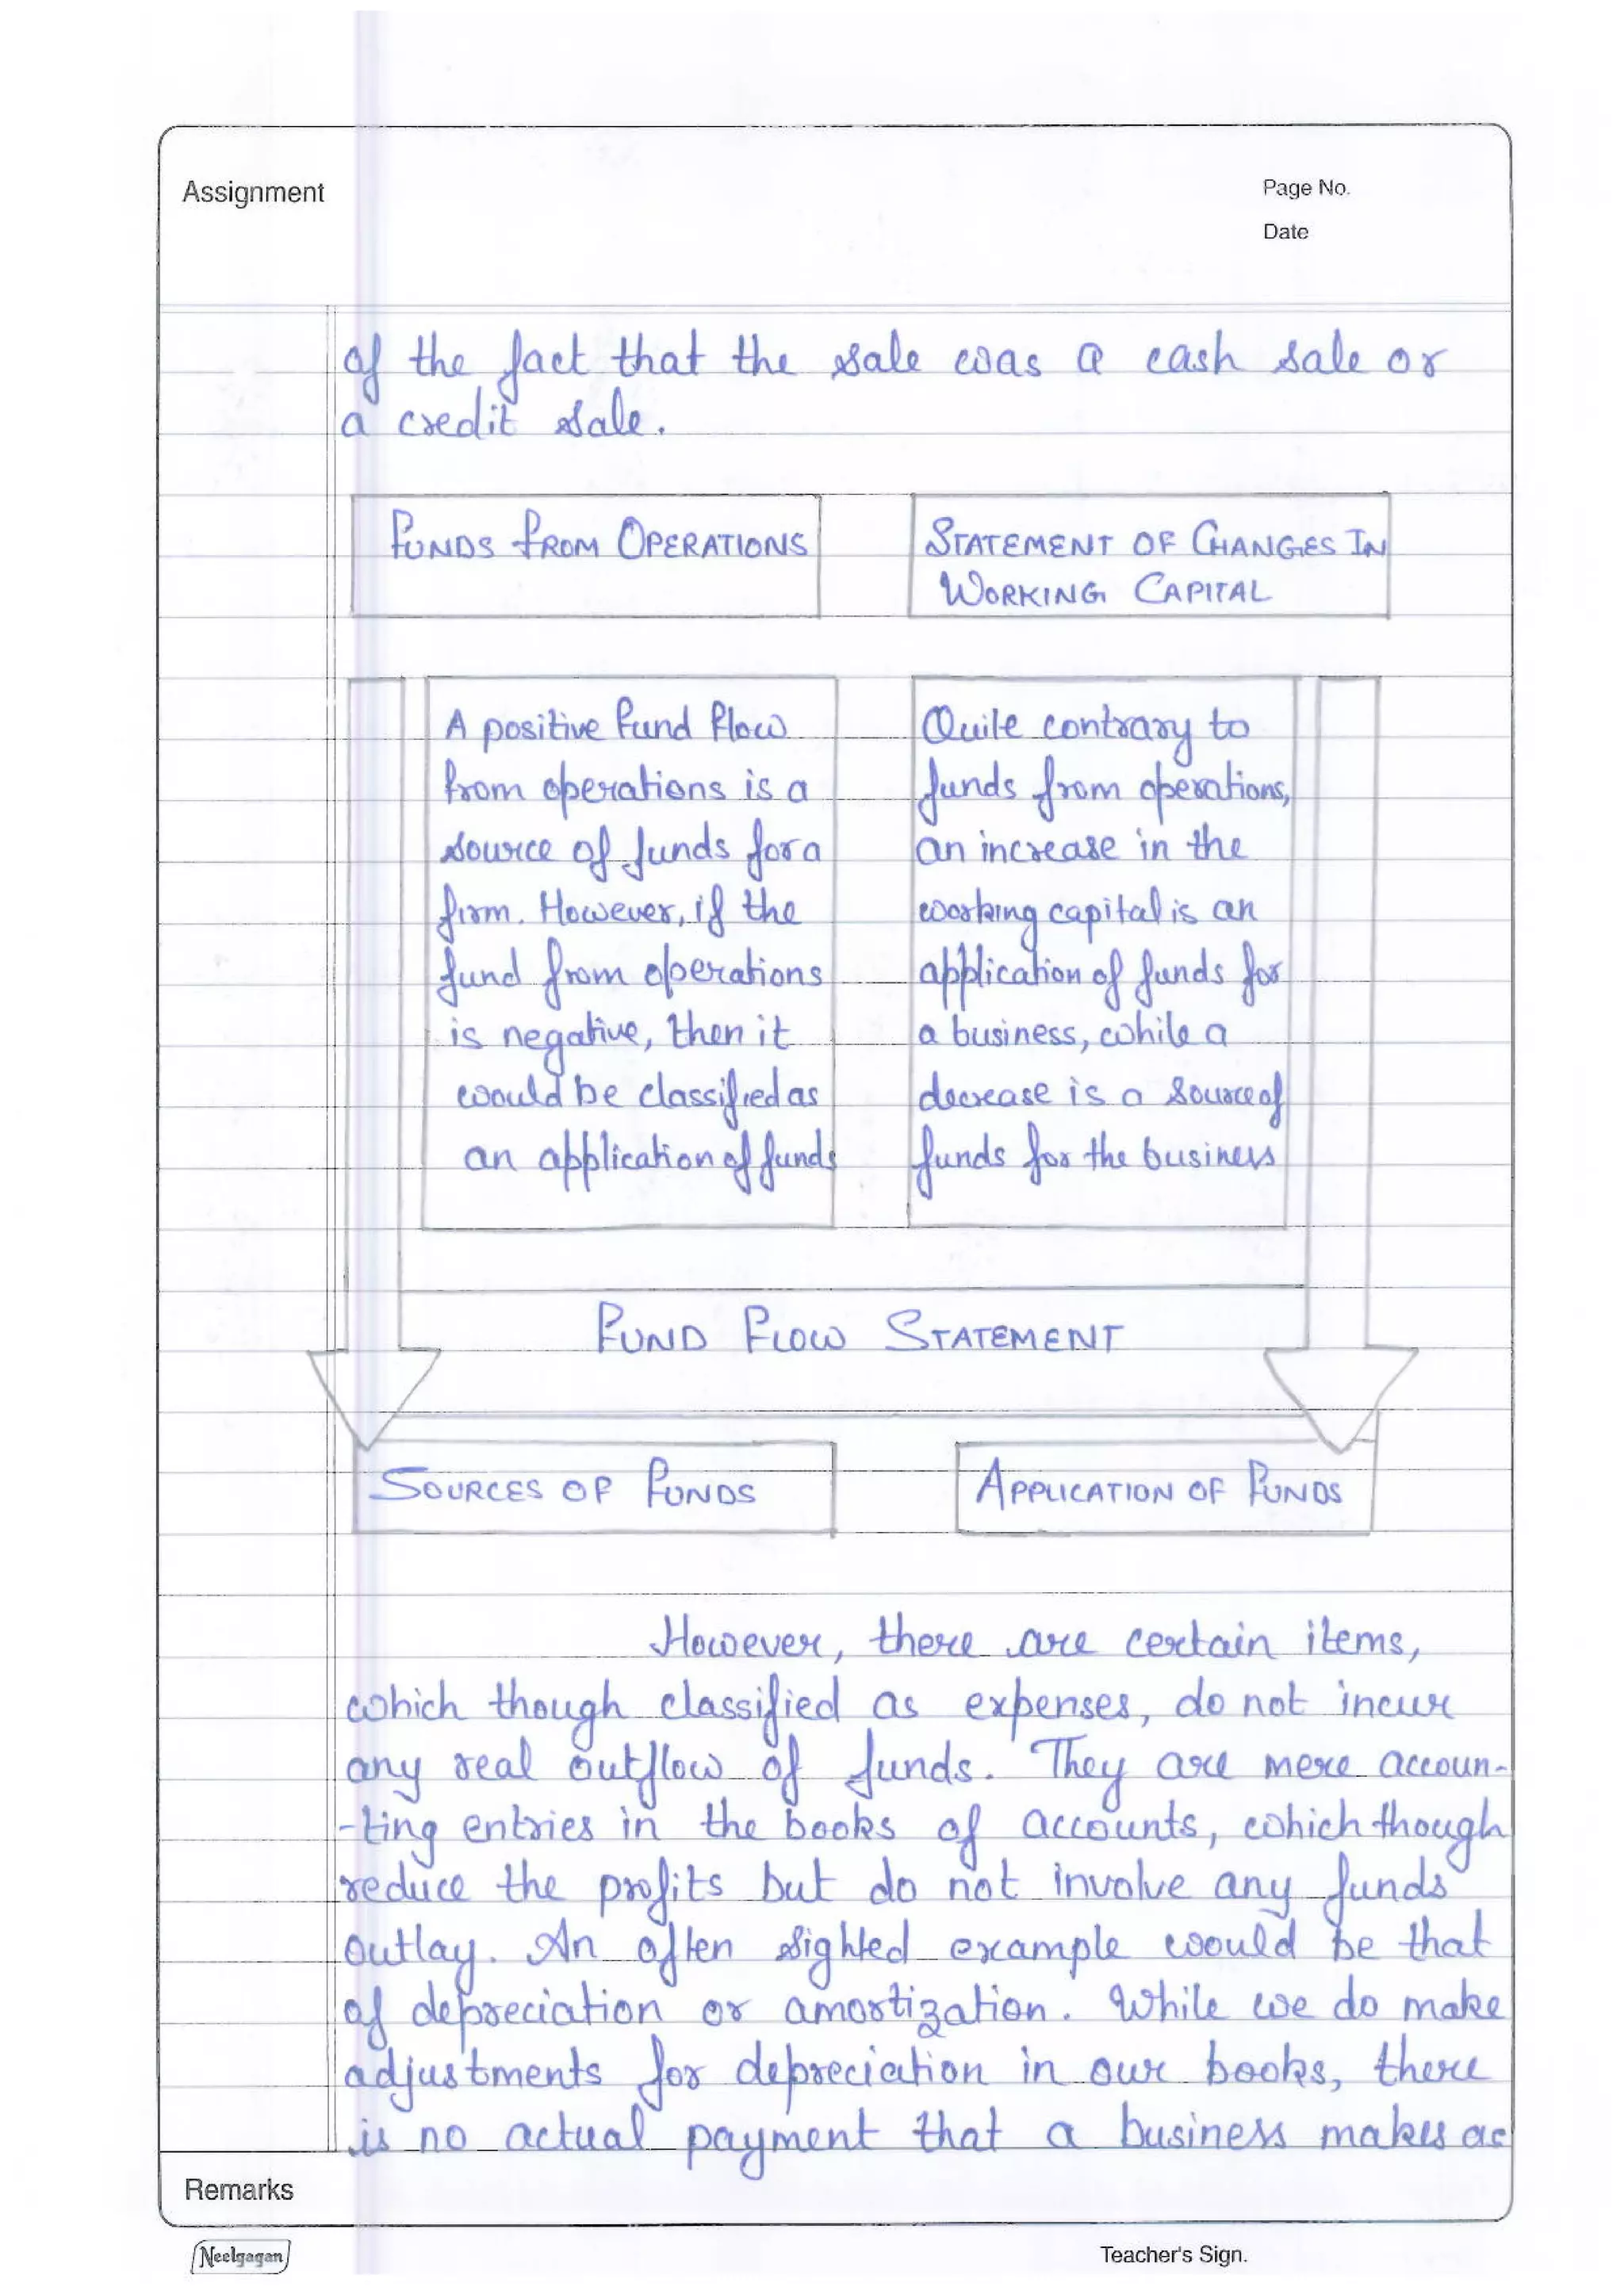 Assignment
Page No.
Date
of the fact that the sale was a cash sale or
a credit sale.
FUNDS FROM OPERATIONS
STATEMENT OF CHANGES IN
WORKING CAPITAL
A positive fund flow
from operations is a
source of funds for a
firm. However, if the
fund from operations
is negative, then it
would be classified as
an application of funds
Quite contrary to
funds from operations,
an increase in the
working capital is an
application of funds for
a business, while a
decrease is a source of
funds for the business
FUND FLOW STATEMENT
SOURCES OF FUNDS
APPLICATION OF FUNDS
However, there are certain items,
which though classified as expenses, do not incur
any real outflow of funds. They are mere accoun-
-ting entries in the books of accounts, which though
reduce the profits but do not involve any funds
outlay. An often sighted example would be that
of depreciation or amortization. While we do make
adjustments for depreciation in our books, there
is no actual payment that a business makes as
Remarks
Neelgagan
Teacher's Sign.